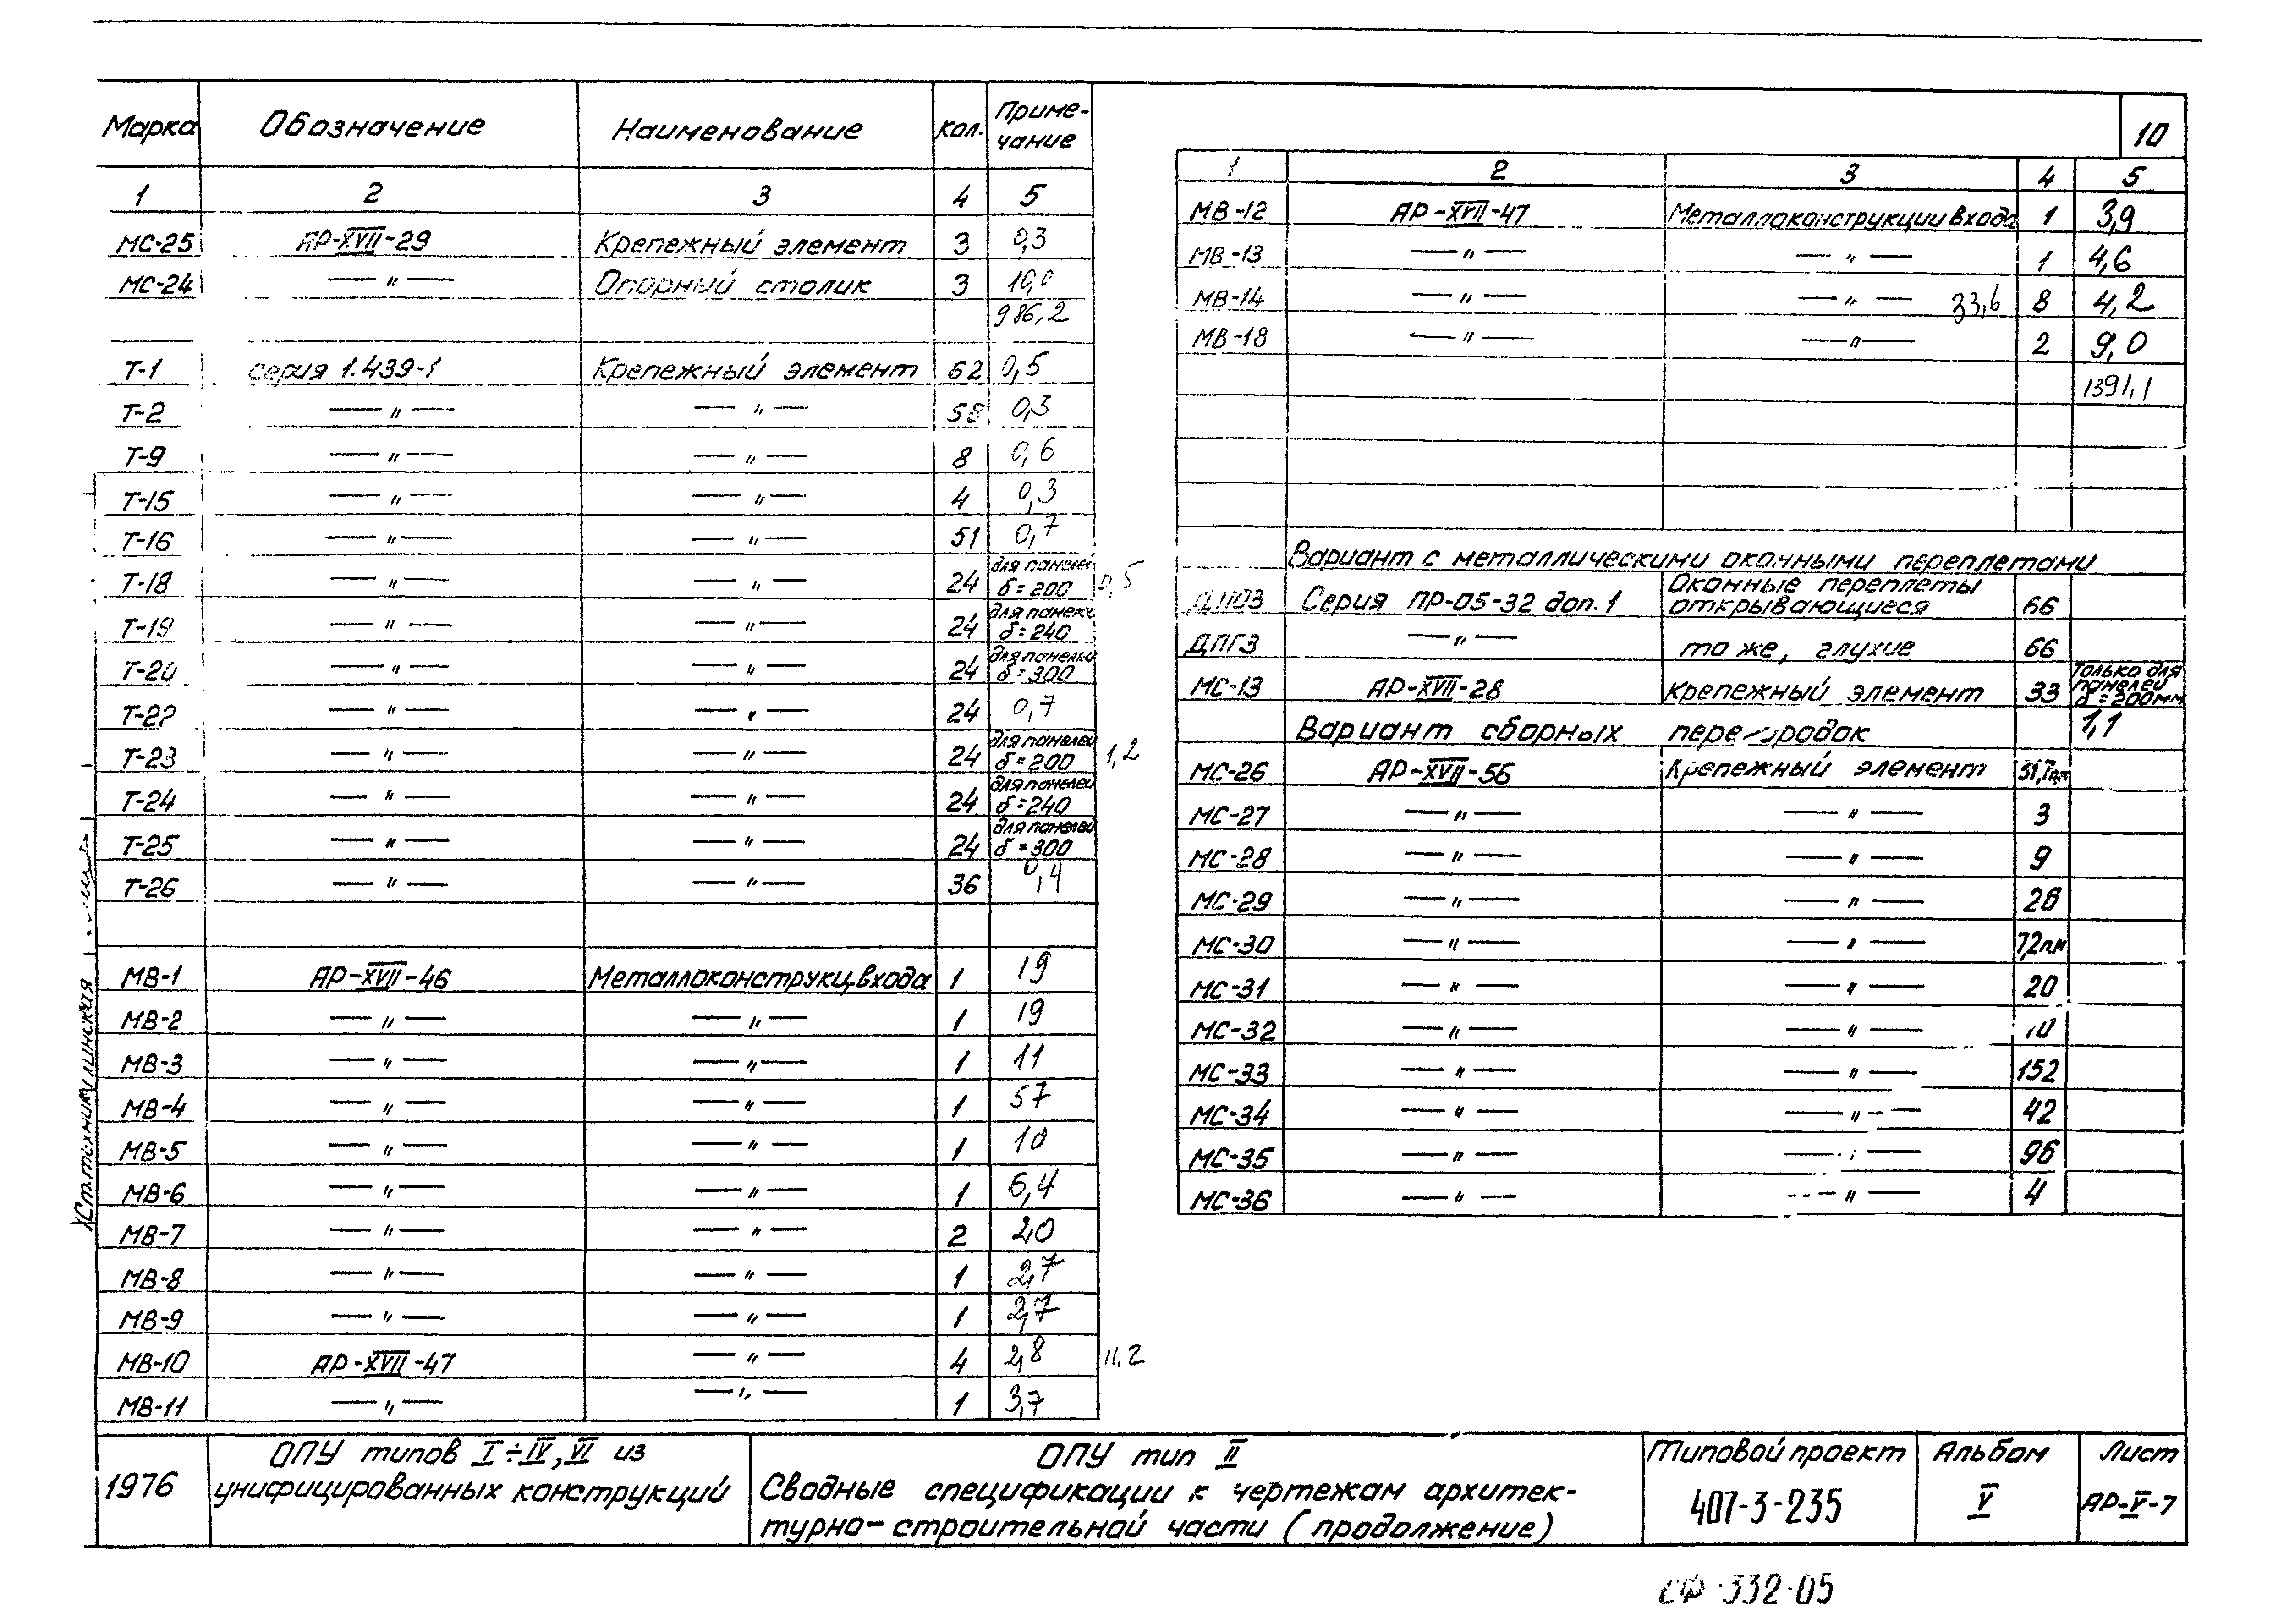 10
Марка Обозначение Наименование кол. Примечание
1 2 3 4 5
МС-25 АР-XVII-29 Крепежный элемент 3 0,3
МС-24 —〃 — Опорный столик 3 10,0
986,2
Т-1 серия 1.439-1 Крепежный элемент 62 0,5
Т-2 — 〃 — — 〃 — 58 0,3
Т-9 — 〃 — — 〃 — 8 0,6
Т-15 — 〃 — — 〃 — 4 0,3
Т-16 — 〃 — — 〃 — 51 0,7
Т-18 — 〃 — — 〃 — 24 для панелей δ=200 0,5
Т-19 — 〃 — — 〃 — 24 для панелей δ=240
Т-20 — 〃 — — 〃 — 24 для панелей δ=300
Т-22 — 〃 — — 〃 — 24 0,7
Т-23 — 〃 — — 〃 — 24 для панелей δ=200 1,2
Т-24 — 〃 — — 〃 — 24 для панелей δ=240
Т-25 — 〃 — — 〃 — 24 для панелей δ=300
Т-26 — 〃 — — 〃 — 36 0,4
МВ-1 АР-XVII-46 Металлоконструкц.входа 1 19
МВ-2 — 〃 — — 〃 — 1 19
МВ-3 — 〃 — — 〃 — 1 11
МВ-4 — 〃 — — 〃 — 1 57
МВ-5 — 〃 — — 〃 — 1 10
МВ-6 — 〃 — — 〃 — 1 6,4
МВ-7 — 〃 — — 〃 — 2 2,0
МВ-8 — 〃 — — 〃 — 1 2,7
МВ-9 — 〃 — — 〃 — 1 2,7
МВ-10 АР-XVII-47 — 〃 — 4 2,8 11,2
МВ-11 — 〃 — — 〃 — 1 3,7
1 2 3 4 5
МВ-12 АР-XVII-47 Металлоконструкции входа 1 3,9
МВ-13 — 〃 — — 〃 — 1 4,6
МВ-14 — 〃 — — 〃 — 33,6 8 4,2
МВ-18 — 〃 — — 〃 — 2 9,0
1391,1
Вариант с металлическими оконными переплетами
ДПО3 Серия ПР-05-32 доп.1 Оконные переплеты открывающиеся 66
ДПГ3 — 〃 — то же, глухие 66
МС-13 АР-XVII-28 Крепежный элемент 33 Только для панелей δ=200мм
Вариант сборных перегородок 1,1
МС-26 АР-XVII-56 Крепежный элемент
МС-27 — 〃 — — 〃 — 3
МС-28 — 〃 — — 〃 — 9
МС-29 — 〃 — — 〃 —
МС-30 — 〃 — — 〃 —
МС-31 — 〃 — — 〃 — 20
МС-32 — 〃 — — 〃 —
МС-33 — 〃 — — 〃 — 152
МС-34 — 〃 — — 〃 — 42
МС-35 — 〃 — — 〃 — 96
МС-36 — 〃 — — 〃 — 4
Ст.техник
1976
ОПУ типов I÷IV,VI из
унифицированных конструкций
ОПУ тип II
Сводные спецификации к чертежам архитек-
турно-строительной части (продолжение)
Типовой проект
407-3-235
Альбом
V
Лист
АР-V-7
СФ 332-05